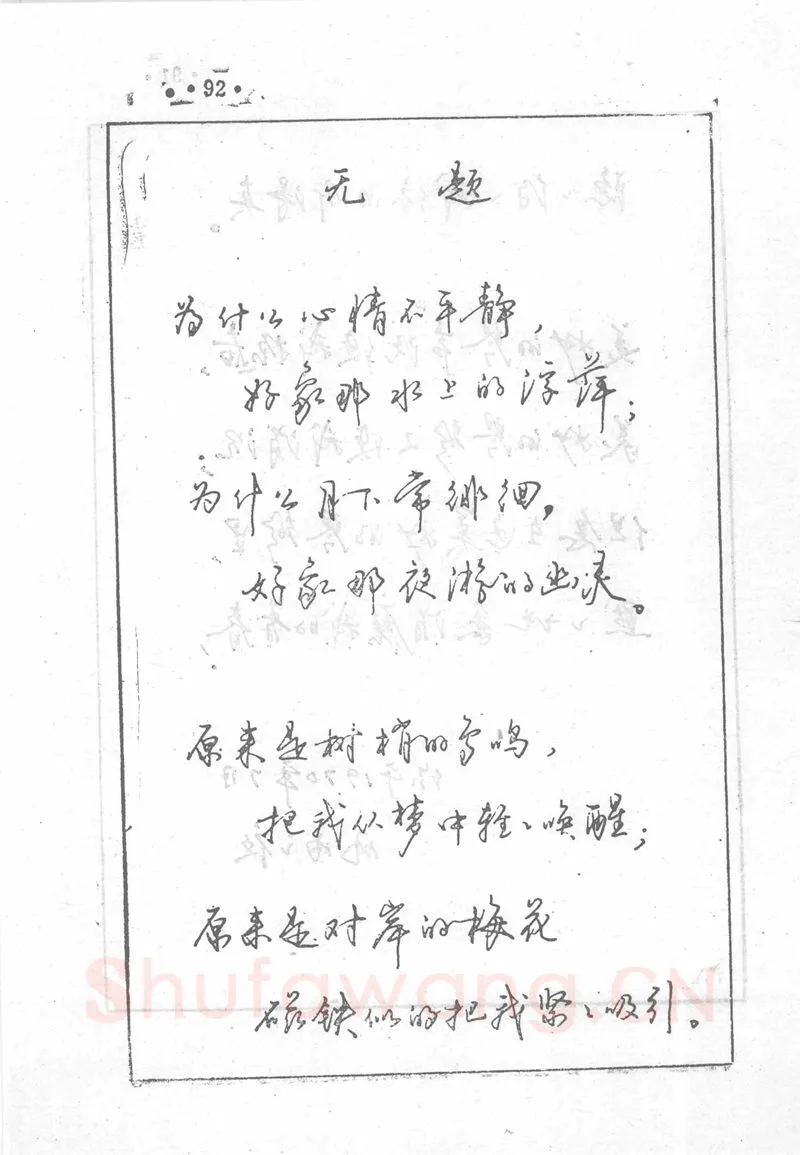 92
无 题
为什么心情不平静，
好象那水上的浮萍；
为什么月下常徘徊，
好象那夜游的幽灵。
原来是树梢的鸟鸣，
把我从梦中轻轻唤醒；
原来是对岸的梅花
磁铁似的把我紧紧吸引。
Shufawang.CN